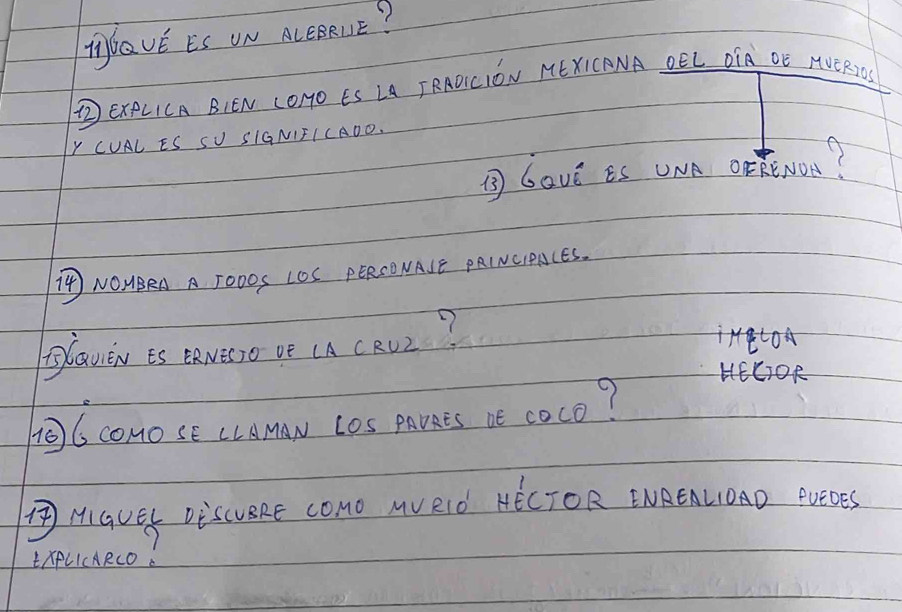 11) ¿QUÉ ES UN ALEBRIJE?
12) EXPLICA BIEN COMO ES LA TRADICIÓN MEXICANA DEL DÍA DE MUERTOS
Y CUAL ES SU SIGNIFICADO.
13) ¿QUÉ ES UNA OFRENDA?
14) NOMBRA A TODOS LOS PERSONAJE PRINCIPALES.
15) ¿QUIÉN ES ERNESTO DE LA CRUZ?
IMELDA
HECTOR
16) ¿COMO SE LLAMAN LOS PADRES DE COCO?
17) MIGUEL DESCUBRE COMO MURIÓ HÉCTOR ENREALIDAD PUEDES
EXPLICARLO?